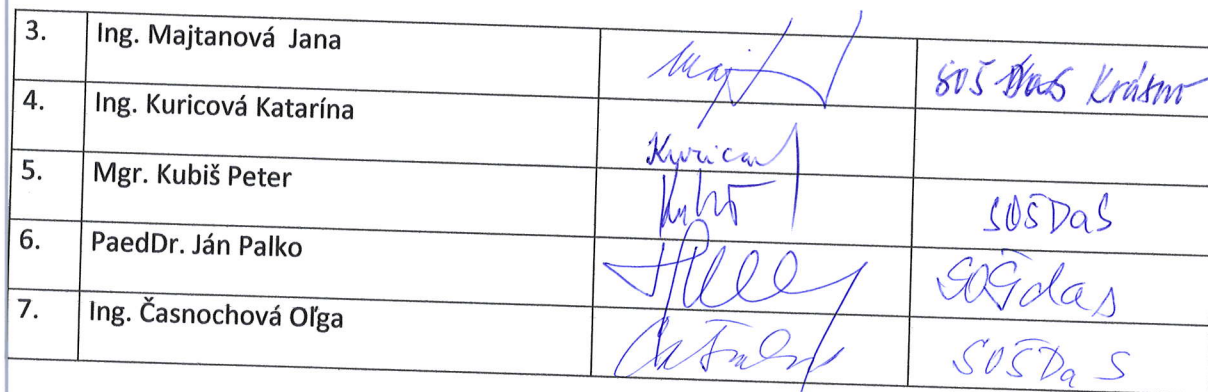 3. Ing. Majtanová Jana SOŠ DaS Krásno
4. Ing. Kuricová Katarína
5. Mgr. Kubiš Peter SOŠDaS
6. PaedDr. Ján Palko SOŠdas
7. Ing. Časnochová Oľga SOŠDaS